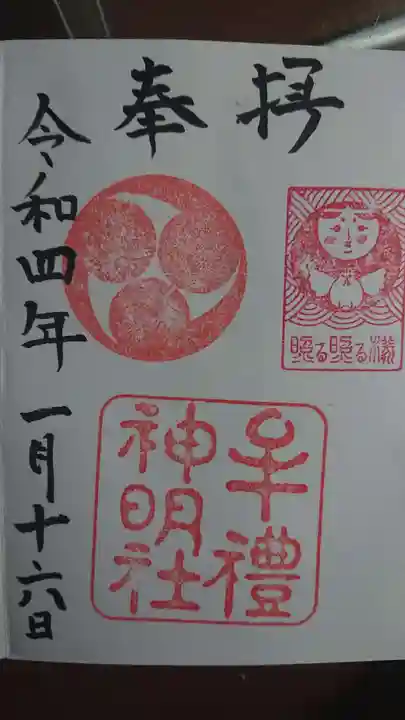 奉拝
令和四年 一月十六日
牟禮
神明社